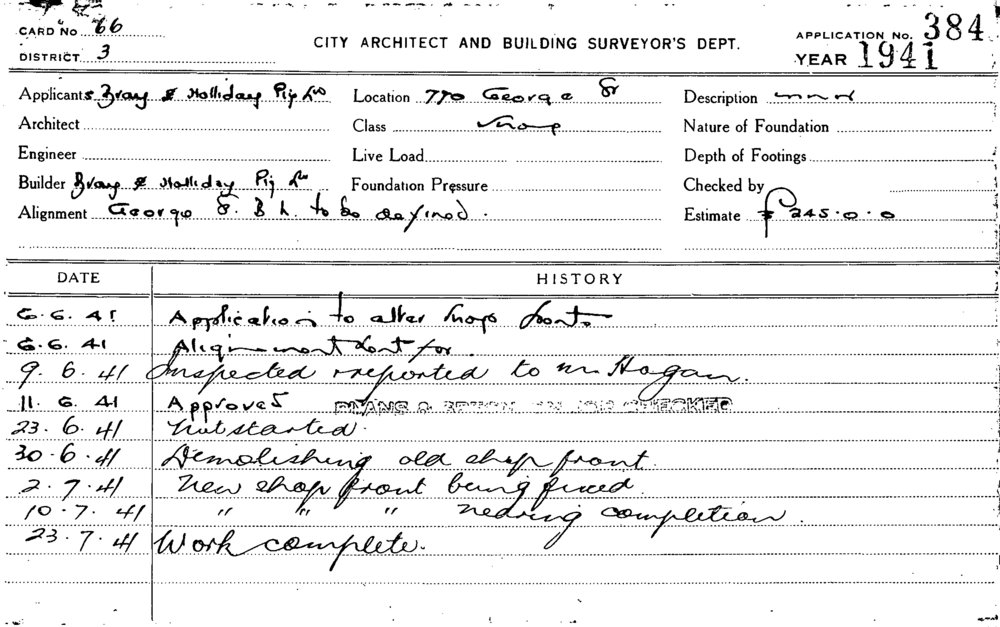 CARD No 66
DISTRICT 3
CITY ARCHITECT AND BUILDING SURVEYOR'S DEPT.
APPLICATION No. 384
YEAR 1941
Applicants Bray & Holliday Pty Ltd
Location 770 George St
Description
Architect
Class Shop
Nature of Foundation
Engineer
Live Load
Depth of Footings
Builder Bray & Holliday Pty Ltd
Foundation Pressure
Checked by
Alignment George St. B L. to be defined.
Estimate £ 245.0.0
DATE HISTORY
6.6.41 Application to alter shop front
6.6.41 Alignment sent for
9.6.41 Inspected & reported to Mr Hogan.
11.6.41 Approved PLANS & ON JOB CHECKED
23.6.41 Not started.
30.6.41 Demolishing old shop front.
2.7.41 New shop front being fixed.
10.7.41 " " " nearing completion.
23.7.41 Work complete.